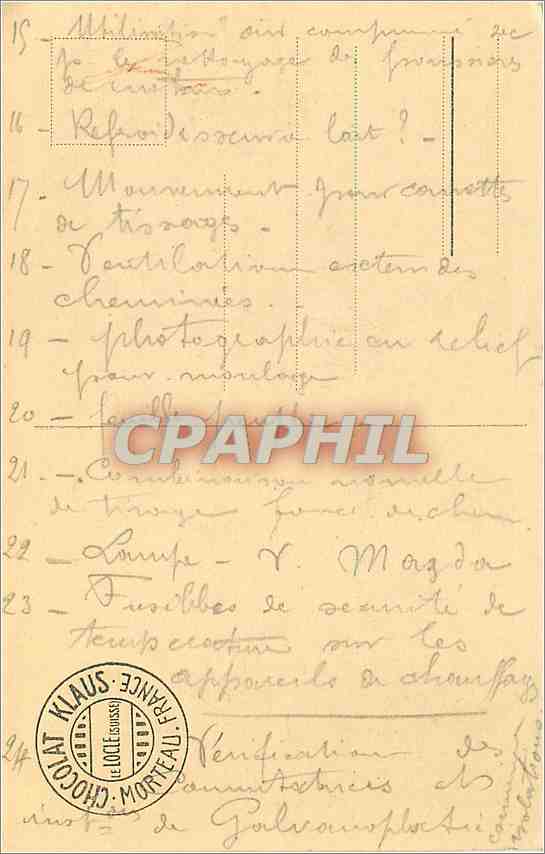 15 - Utilisation air comprimé sec
p le nettoyage des poussières
de
16 - Refroidisseur à lait ? -
17 - Mouvement pour cannettes
de tissages -
18 - Ventilation extern des
cheminées -
19 - photographie en relief
pour moulage
20 -
CPAPHIL
21 - Combinaison nouvelle
de tirage forcé de chem
22 - Lampe - V. Magda
23 - Fusibles de sécurité de
température sur les
appareils de chauffage
24 Vérification des
commutatrices et
inst^ons de Galvanoplastie
isolations.
CHOCOLAT KLAUS · MORTEAU · FRANCE ·
LE LOCLE (SUISSE)